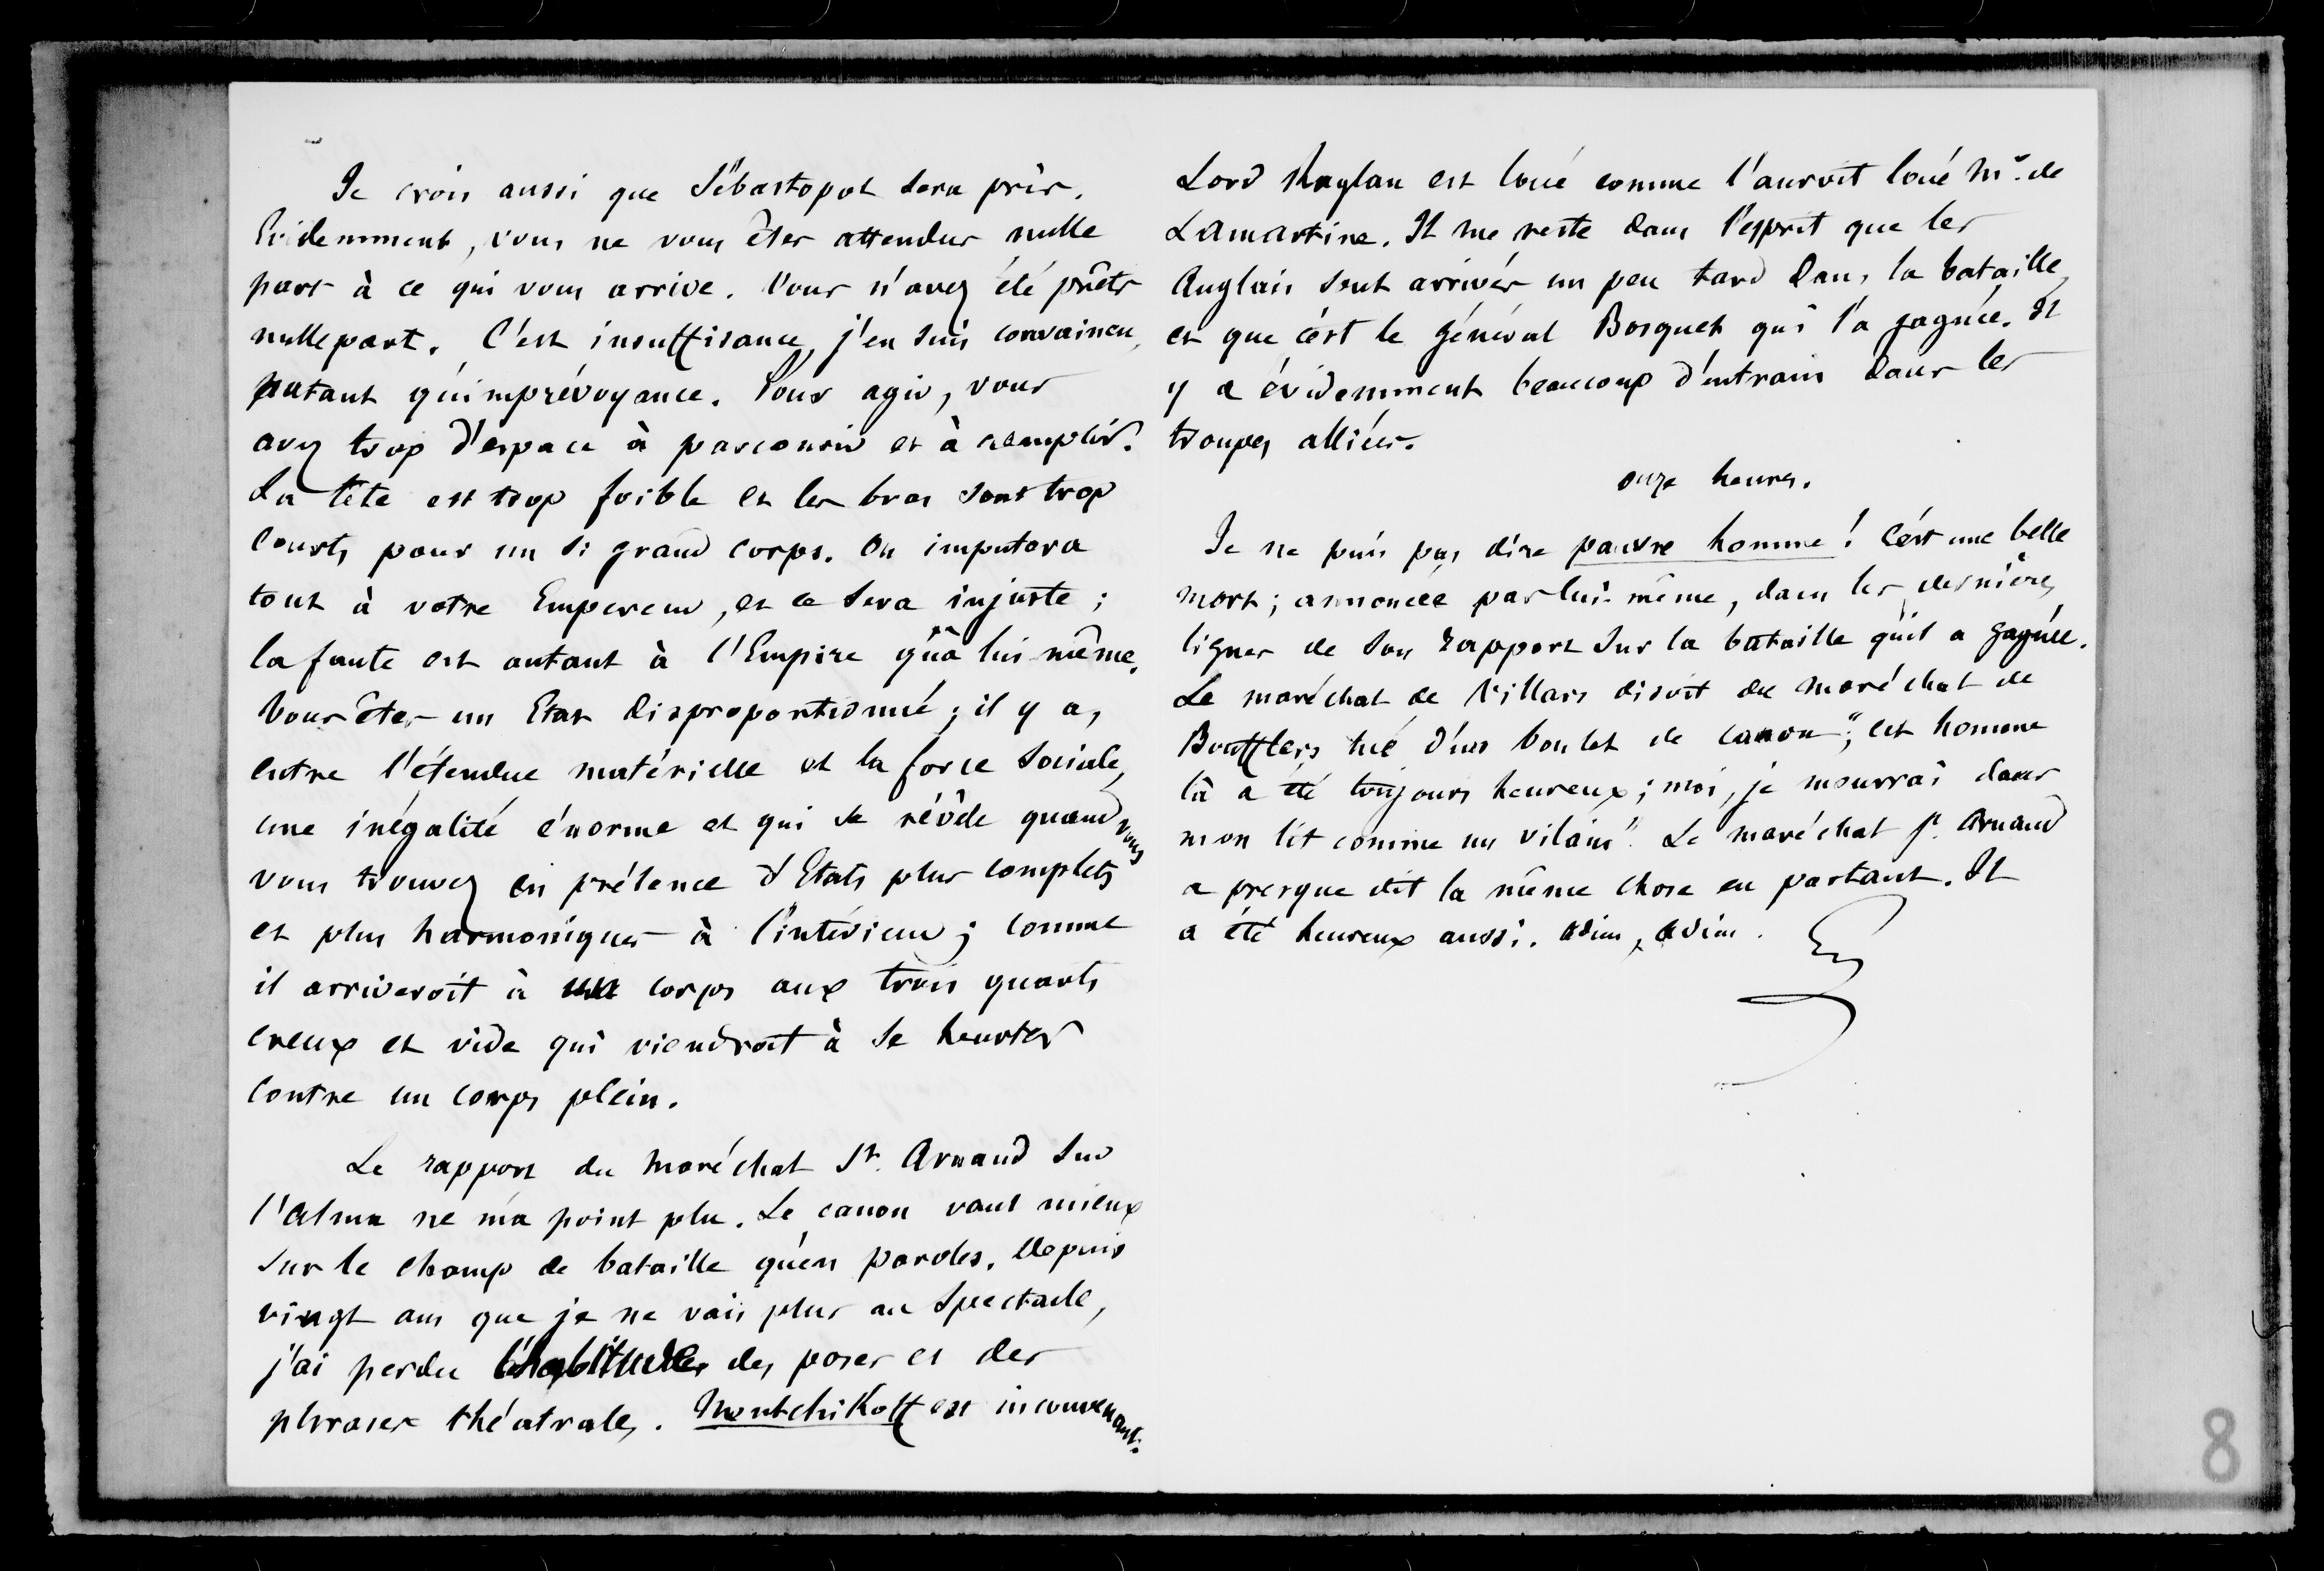 Je crois aussi que Sébastopol sera pris.
Evidemment, vous ne vous êtes attendus nulle
part à ce qui vous arrive. Vous n'avez été prêts
nulle part. C'est insuffisance, j'en suis convaincu,
autant qu'imprévoyance. Pour agir, vous
avez trop d'espace à parcourir et à remplir.
La tête est trop foible et les bras sont trop
courts pour un si grand corps. On imputera
tout à votre Empereur, et ce sera injuste ;
la faute est autant à l'Empire qu'à lui-même.
Vous êtes un Etat disproportionné ; il y a,
entre l'étendue matérielle et la force sociale,
une inégalité énorme et qui se révèle quand vous
vous trouvez en présence d'Etats plus complets
et plus harmoniques à l'intérieur ; comme
il arriveroit à un corps aux trois quarts
creux et vide qui viendroit à se heurter
contre un corps plein.
Le rapport du maréchal St. Arnaud sur
l'Alma ne m'a point plu. Le canon vaut mieux
sur le champ de bataille qu'en paroles. Depuis
vingt ans que je ne vais plus au spectacle,
j'ai perdu l'habitude des poses et des
phrases théatrales. Mentchikoff est inconvenant.
Lord Raglan est loué comme l'auroit loué Mr. de
Lamartine. Il me reste dans l'esprit que les
Anglais sont arrivés un peu tard dans la bataille,
et que c'est le général Bosquet qui l'a gagnée. Il
y a évidemment beaucoup d'entrain dans les
troupes alliées.
onze heures.
Je ne puis pas dire pauvre homme ! C'est une belle
mort ; annoncée par lui-même, dans les dernières
lignes de son rapport sur la bataille qu'il a gagnée.
Le maréchal de Villars disoit du maréchal de
Boufflers tué d'un boulet de canon ; "cet homme
là a été toujours heureux ; moi, je mourrai dans
mon lit comme un vilain". Le maréchal St. Arnaud
a presque dit la même chose en partant. Il
a été heureux aussi. Adieu, adieu.
8